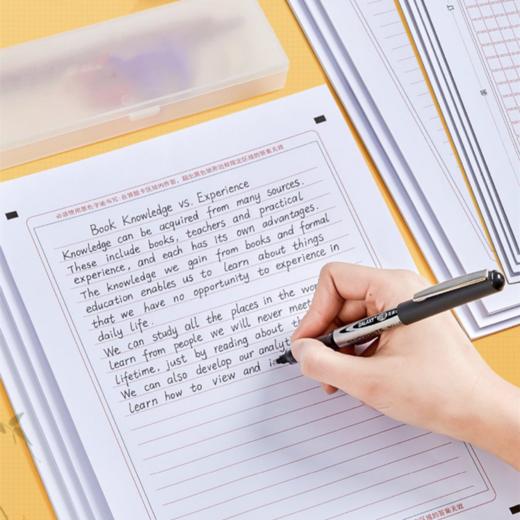 必须使用黑色字迹书写,在答题卡区域内作答,超出黑色矩形边框限定区域的答案无效
Book Knowledge vs. Experience
Knowledge can be acquired from many sources.
These include books, teachers and practical
experience, and each has its own advantages.
The knowledge we gain from books and formal
education enables us to learn about things
that we have no opportunity to experience in
daily life.
We can study all the places in the
learn from people we will never meet
lifetime, just by reading about
We can also develop our
learn how to view and
区域的答案无效